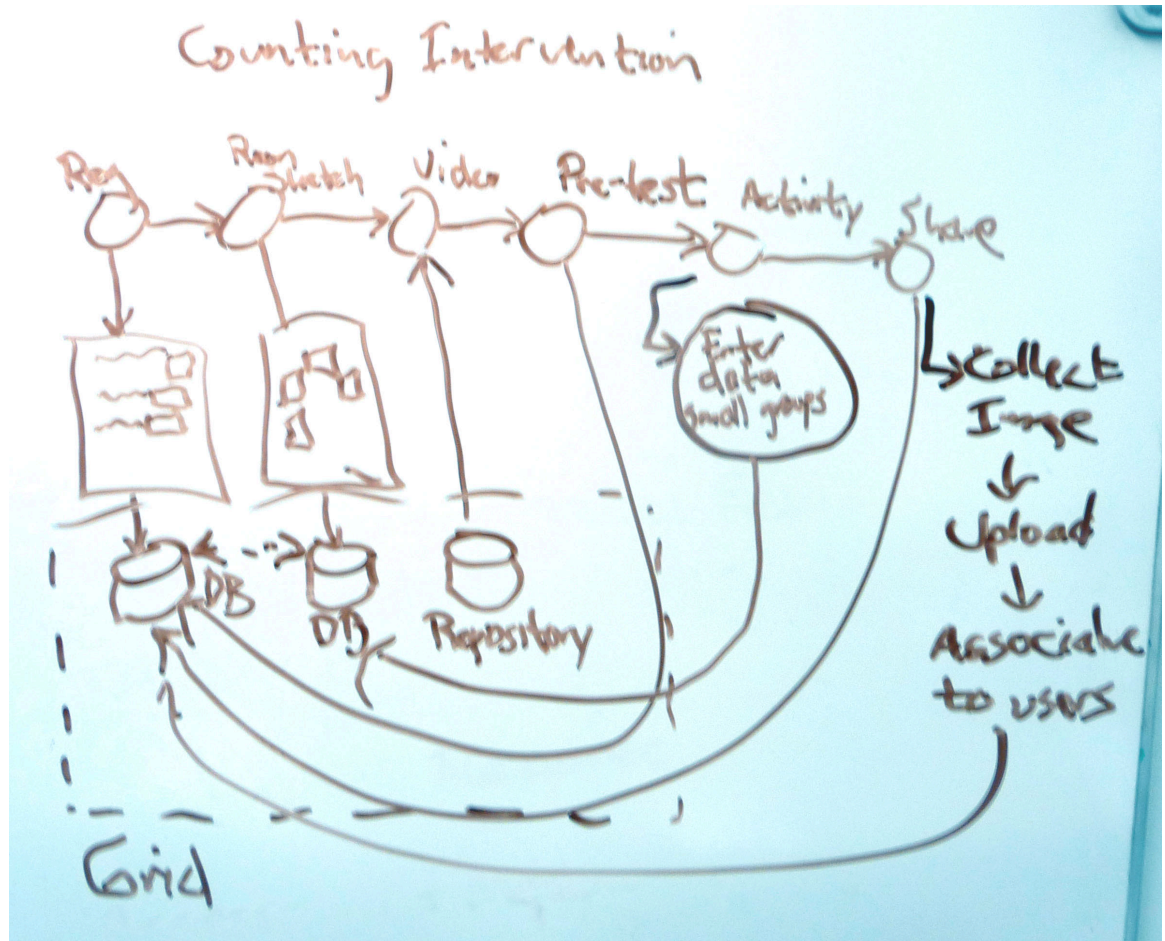 Counting Intervention
Reg
Room
Sketch
Video
Pre-test
Activity
Share
Enter
data
small groups
Collect
Image
Upload
Associate
to users
DB
DB
Repository
Grid